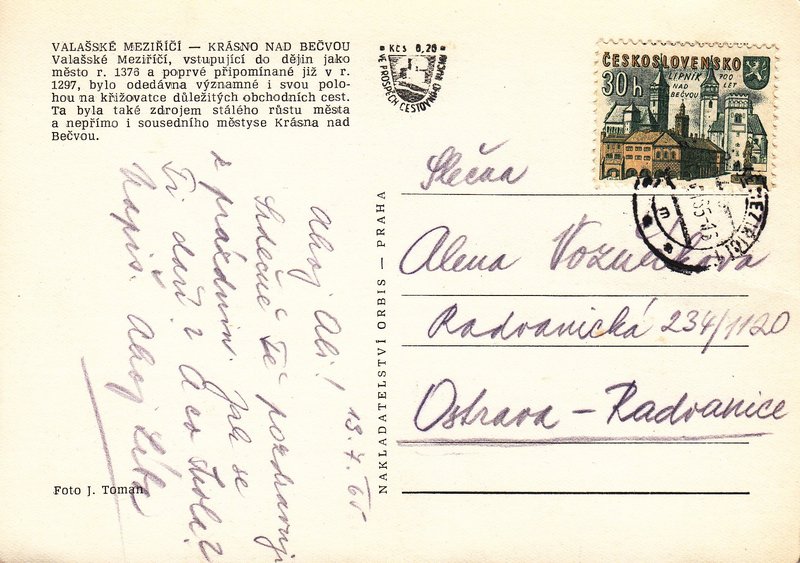 VALAŠSKÉ MEZIŘÍČÍ — KRÁSNO NAD BEČVOU
Valašské Meziříčí, vstupující do dějin jako
město r. 1376 a poprvé připomínané již v r.
1297, bylo odedávna významné i svou polo-
hou na křižovatce důležitých obchodních cest.
Ta byla také zdrojem stálého růstu města
a nepřímo i sousedního městyse Krásna nad
Bečvou.
Kčs 0,20
VE PROSPĚCH CESTOVNÍHO RUCHU
ČESKOSLOVENSKO
30 h
LIPNÍK
NAD
BEČVOU
700
LET
13. 7. 65
Ahoj Ali!
Srdečně Tě pozdravuji
z prázdnin. Jak se
Ti daří? A co škola?
Napiš. Ahoj Liba
Slečna
Alena
Radvanická 234/1120
Ostrava – Radvanice
NAKLADATELSTVÍ ORBIS — PRAHA
Foto J. Toman